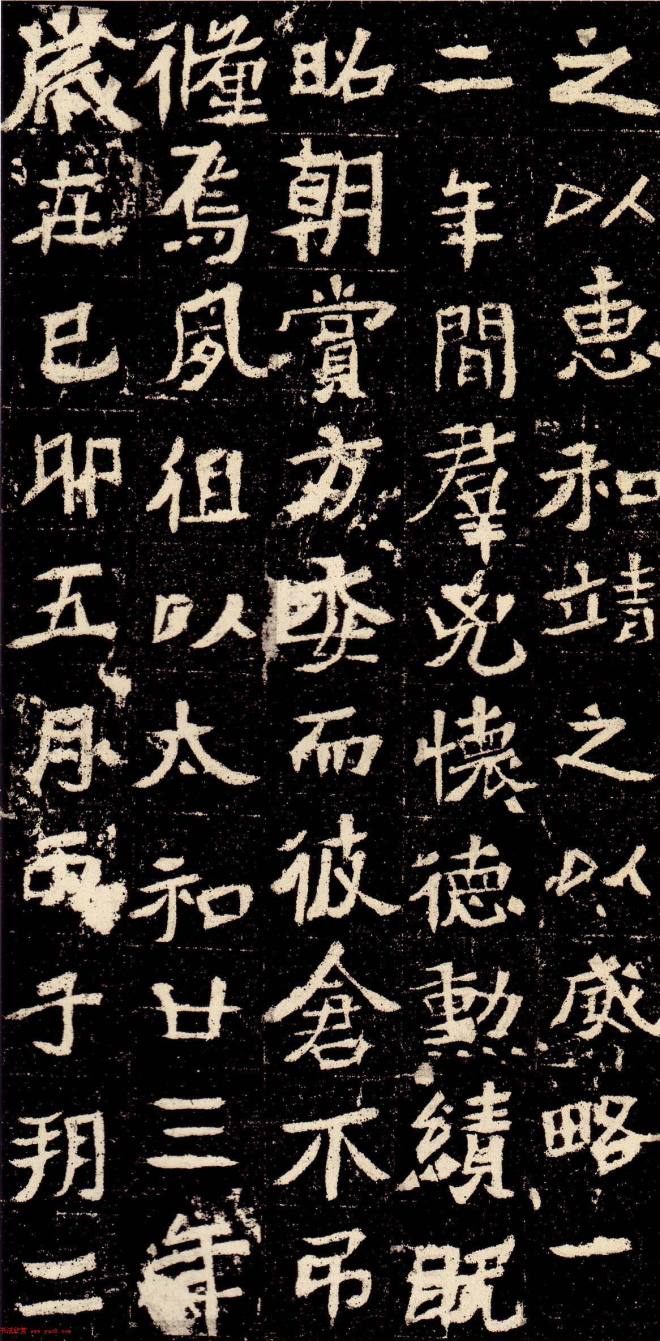 之以惠和靖之以威略一
二年間羣兇懷德勳績既
昭朝賞方而彼倉不吊
徸焉夙徂以太和廿三年
歲在己卯五月丙子朔二
书法欣赏 www.yac8.com